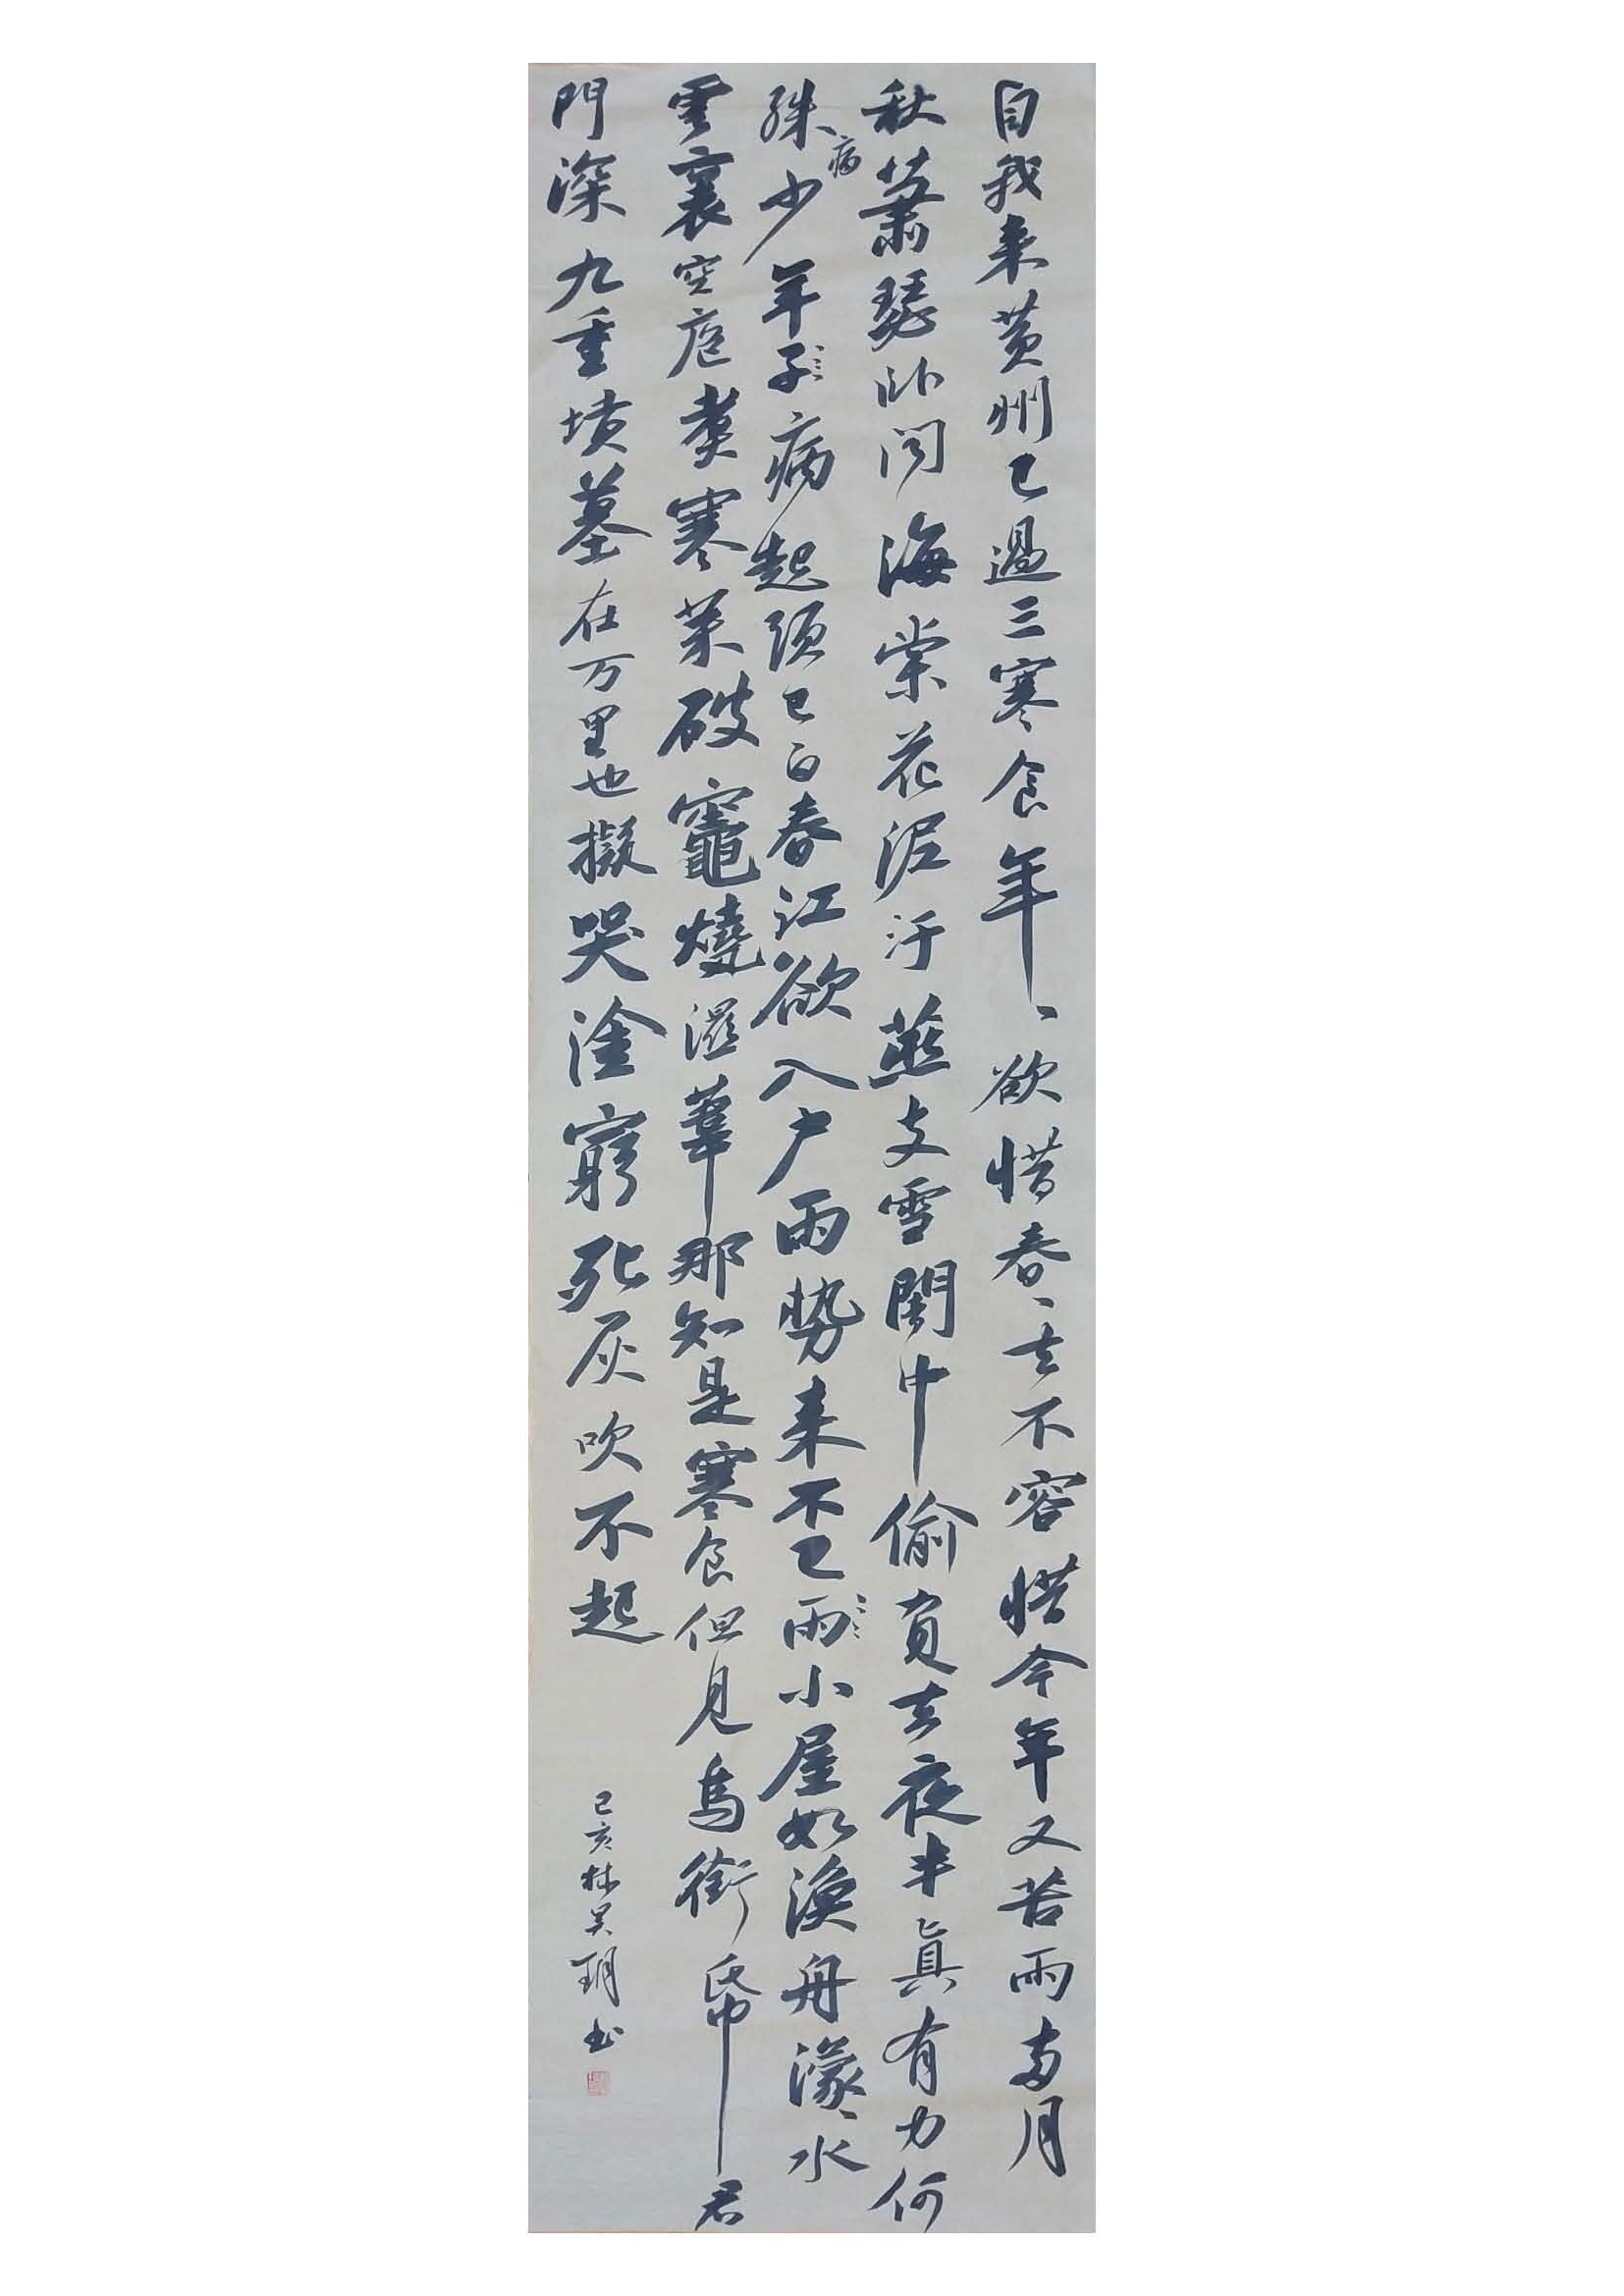 自我来黄州已過三寒食年、欲惜春、去不容惜今年又苦雨兩月
秋蕭瑟卧聞海棠花泥汙燕支雪闇中偷負去夜半真有力何
殊病少年子病起頭已白春江欲入户雨势来不已雨小屋如漁舟濛、水
雲裏空庖煮寒菜破竈燒濕葦那知是寒食但見烏銜帋君
門深九重墳墓在万里也擬哭塗窮死灰吹不起
己亥林吴玥书